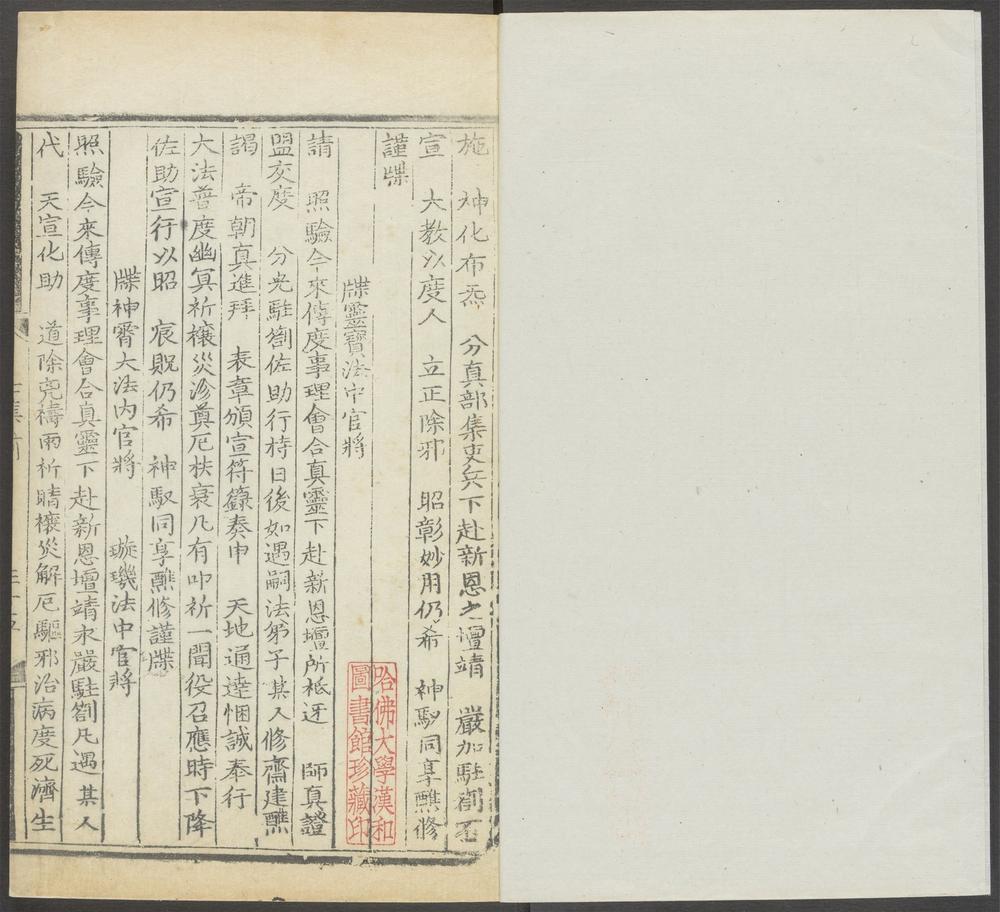 施　神化布炁　分真部集吏兵下赴新恩之壇靖　嚴加駐劄丕
宣　大教以度人　立正除邪　昭彰妙用仍希　神馭同享醮修
謹牒
牒靈寶法中官將
請　照驗今來傳度事理會合真靈下赴新恩壇所祗迓　師真證
盟交度　分光駐劄佐助行持日後如遇嗣法弟子某人修齋建醮
謁　帝朝真進拜　表章頒宣符籙奏申　天地通達悃誠奉行
大法普度幽冥祈禳災沴奠厄扶衰凡有叩祈一聞役召應時下降
佐助宣行以昭　宸貺仍希　神馭同享醮修謹牒
牒神霄大法內官將　璇璣法中官將
照驗今來傳度事理會合真靈下赴新恩壇靖永嚴駐劄凡遇某人
代　天宣化助　道除禱雨祈晴禳災解厄驅邪治病度死濟生
哈佛大學漢和
圖書館珍藏印